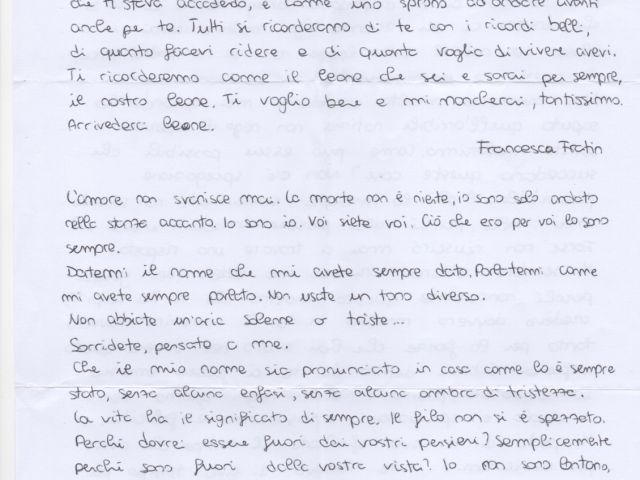 che ti stava accadendo, e come uno sprono ad andare avanti
anche per te. Tutti si ricorderanno di te con i ricordi belli,
di quanto facevi ridere e di quanta voglia di vivere avevi.
Ti ricorderemo come il leone che sei e sarai per sempre,
il nostro leone. Ti voglio bene e mi mancherai, tantissimo.
Arrivederci leone.
Francesca Fratin
L'amore non svanisce mai. La morte non è niente, io sono solo andato
nella stanza accanto. Io sono io. Voi siete voi. Ciò che ero per voi lo sono
sempre.
Datemi il nome che mi avete sempre dato. Parlatemi come
mi avete sempre parlato. Non usate un tono diverso.
Non abbiate un'aria solenne o triste...
Sorridete, pensate a me.
Che il mio nome sia pronunciato in casa come lo è sempre
stato, senza alcuna enfasi, senza alcuna ombra di tristezza.
La vita ha il significato di sempre. Il filo non si è spezzato.
Perchè dovrei essere fuori dai vostri pensieri? Semplicemente
perchè sono fuori dalla vostra vista? Io non sono lontano,